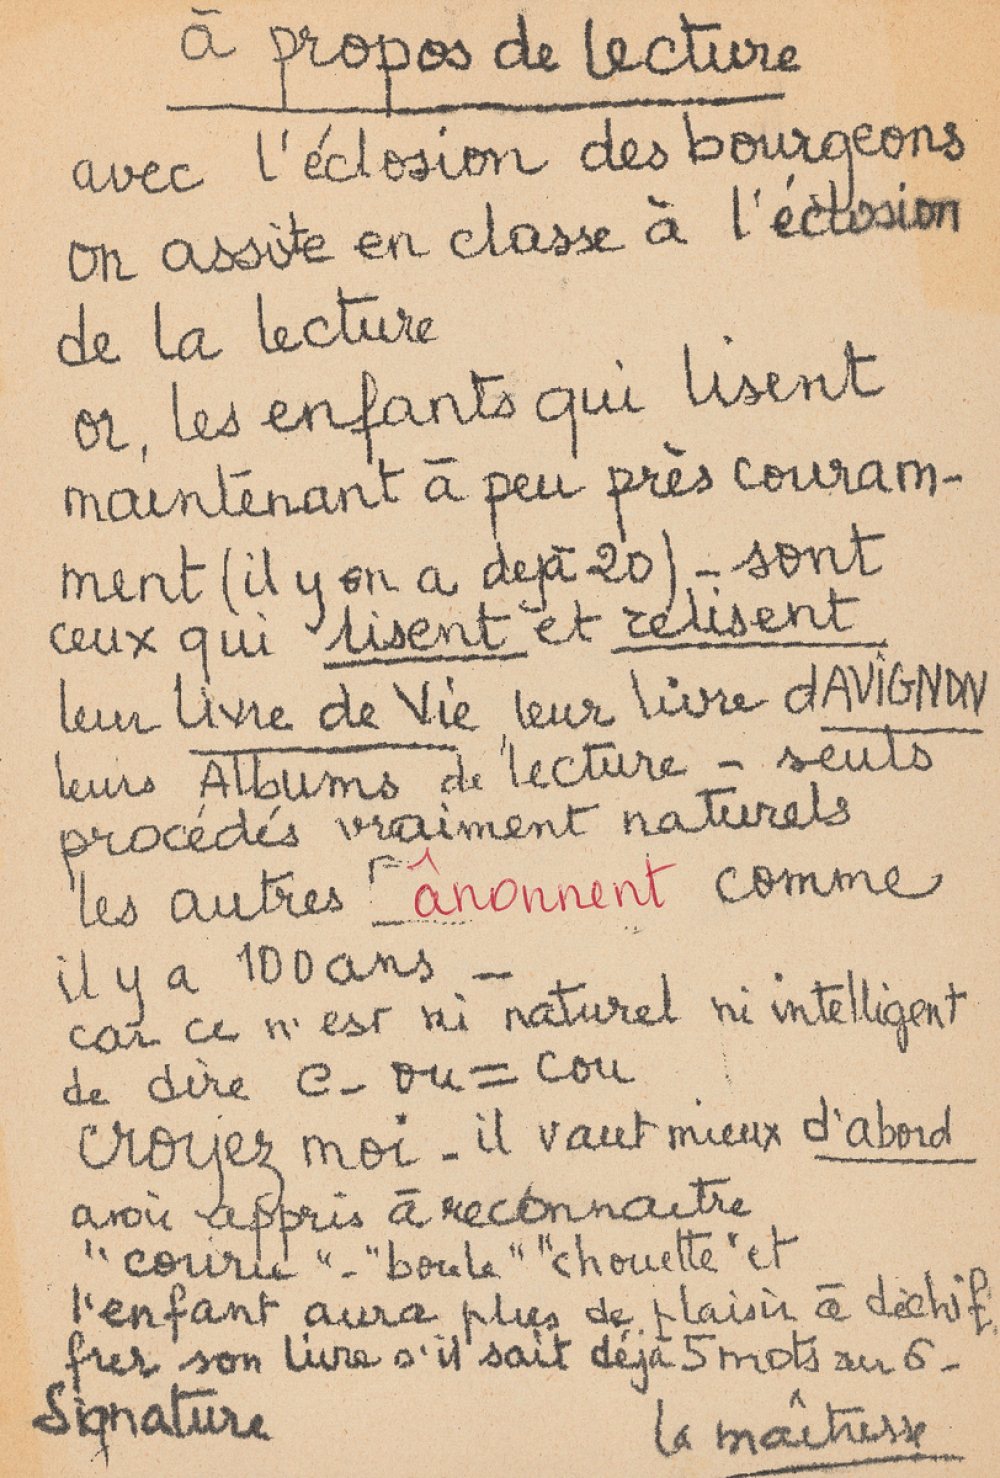 à propos de lecture
avec l'éclosion des bourgeons
on assite en classe à l'éclosion
de la lecture
or, les enfants qui lisent
maintenant à peu près couram-
ment (il y en a dejà 20) - sont
ceux qui lisent et relisent
leur Livre de Vie, leur livre d'AVIGNON
leurs Albums de lecture - seuls
procédés vraiment naturels
les autres ânonnent comme
il y a 100 ans -
car ce n'est ni naturel ni intelligent
de dire C - ou = cou
croyez moi - il vaut mieux d'abord
avoir appris à reconnaitre
"courir" - "boule" "chouette" et
l'enfant aura plus de plaisir à déchif
frer son livre s'il sait déjà 5 mots ou 6 -
Signature
la maîtresse